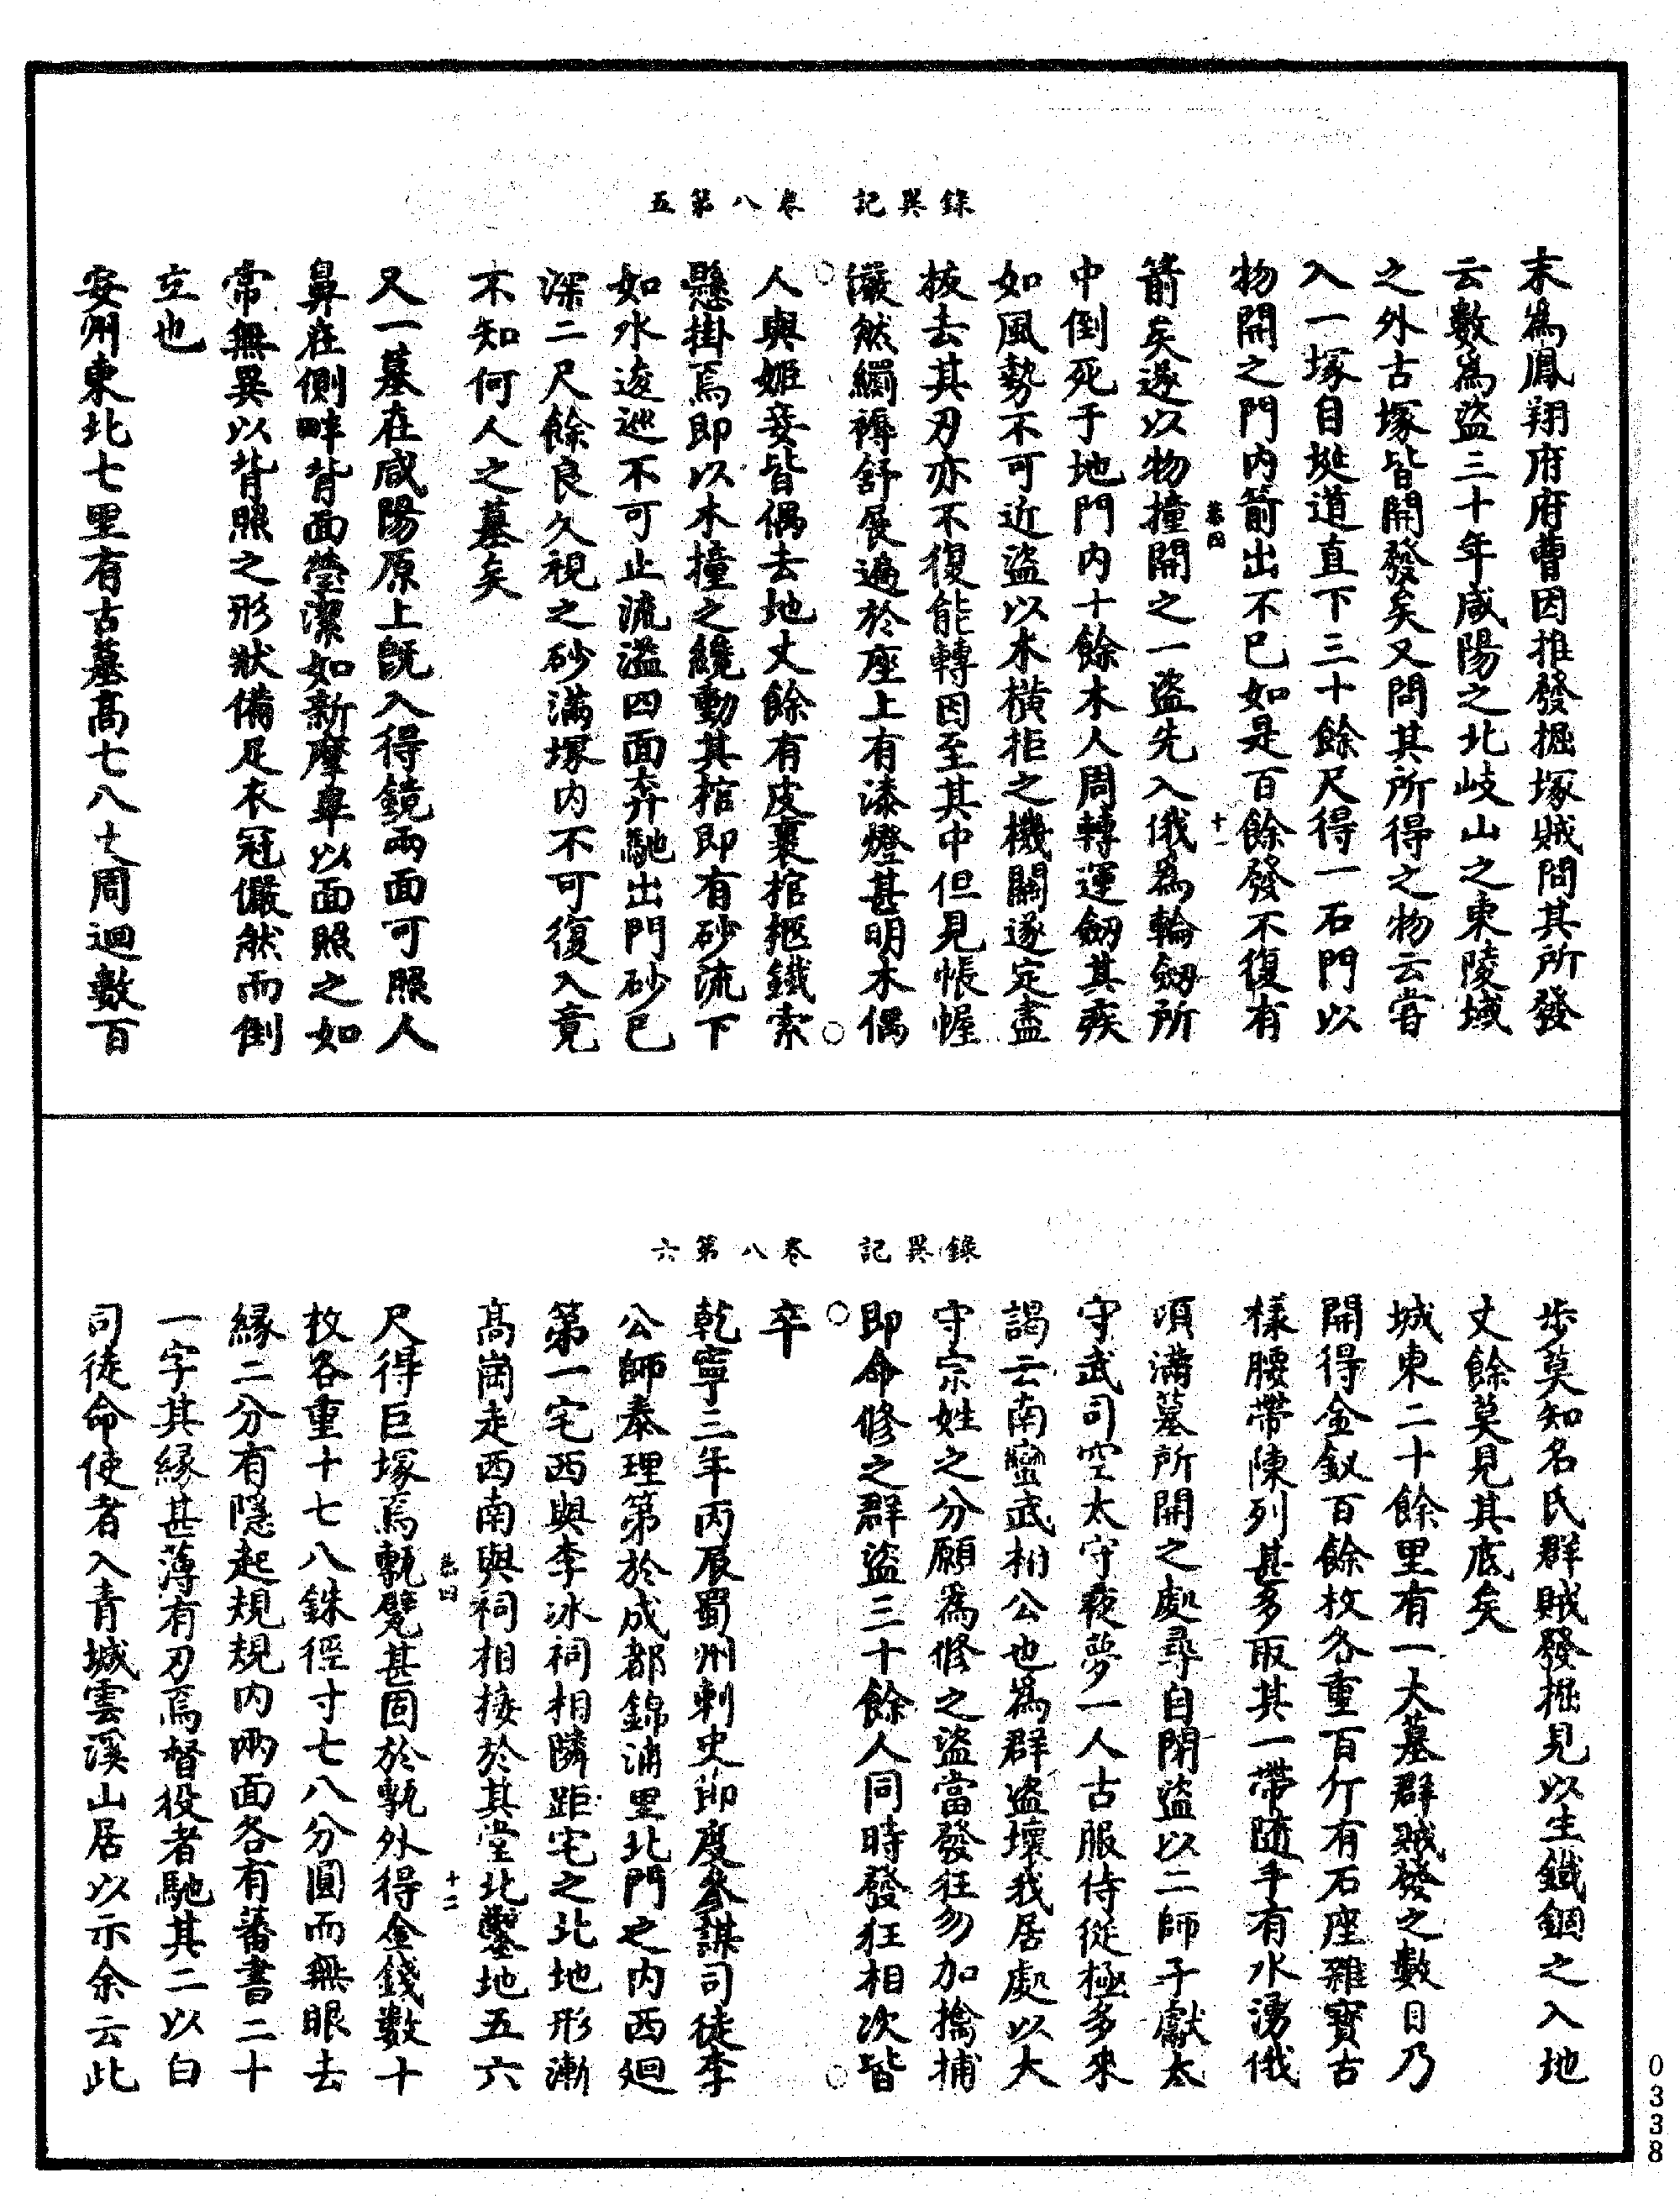 錄異記　卷八第五
末為鳳翔府府曹因推發掘塚賊問其所發
云數為盜三十年咸陽之北岐山之東陵域
之外古塚皆開發矣又問其所得之物云嘗
入一塚自埏道直下三十餘尺得一石門以
物開之門內箭出不已如是百餘發不復有
卷四　十一
箭矣遂以物撞開之一盜先入俄為輪劒所
中倒死于地門內十餘木人周轉運劒其疾
如風勢不可近盜以木橫拒之機關遂定盡
拔去其刃亦不復能轉因至其中但見帳幄
儼然綱褥舒展遍於座上有漆燈甚明木偶
人與姬妾皆偶去地丈餘有皮裹棺柩鐵索
懸掛焉即以木撞之纔動其棺即有砂流下
如水逡巡不可止流溢四面奔馳出門砂已
深二尺餘良久視之砂滿塚內不可復入竟
不知何人之墓矣
又一墓在咸陽原上旣入得鏡兩面可照人
鼻在側畔背面瑩潔如新摩車以面照之如
常無異以背照之形狀備足衣冠儼然而倒
立也
安州東北七里有古墓高七八十周迴數百
錄異記　卷八第六
步莫知名氏群賊發掘見以生鐵錮之入地
丈餘莫見其底矣
城東二十餘里有一大墓群賊發之數日乃
開得金釵百餘枚各重百斤有石座雜寶古
樣腰帶陳列甚多取其一帶隨手有水湧俄
頃滿墓所開之處尋自閉盜以二師子獻太
守武司空太守夜夢一人古服侍從極多來
謁云南蠻武相公也為群盜壞我居處以大
守宗姓之分願為修之盜當發狂勿加擒捕
即命修之群盜三十餘人同時發狂相次皆
卒
乾寧三年丙辰蜀州刺史節度參謀司徒李
公師泰理第於成都錦浦里北門之內西廻
第一宅西與李冰祠相隣距宅之北地形漸
高崗走西南與祠相接於其堂北鑿地五六
卷四　十二
尺得巨塚焉甎甓甚固於甎外得金錢數十
枚各重十七八銖徑寸七八分圓而無眼去
緣二分有隱起規規內兩面各有蕃書二十
一字其緣甚薄有刃焉督役者馳其二以白
司徒命使者入青城雲溪山居以示余云此
0338